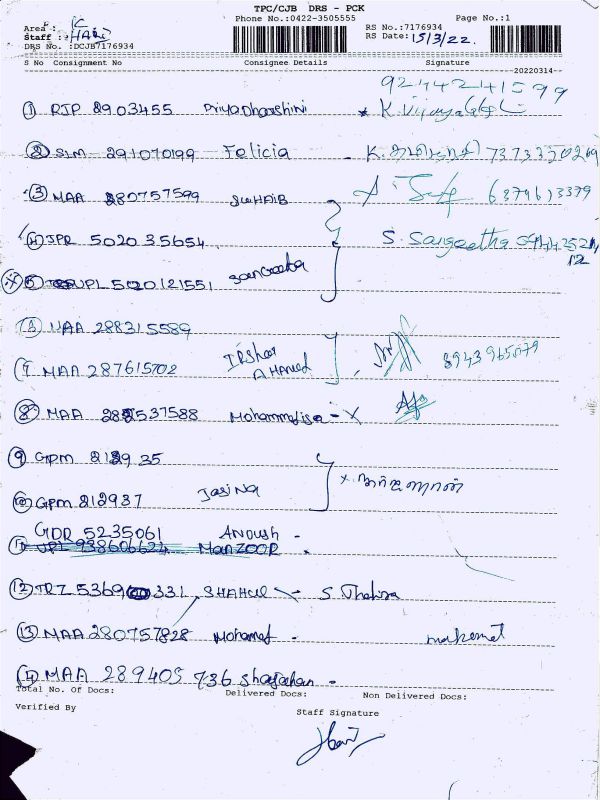 TPC/CJB DRS - PCK
Phone No.:0422-3505555 Page No.:1
Area : K
Staff : HARI
RS No.:7176934
RS Date: 15/3/22.
DRS No. :DCJB7176934
S No Consignment No Consignee Details Signature
20220314
9244241599
1 RJP 8903455 Priyadharshini K. Vijayalakshmi
2 SLM 291070199 Felicia - K. 7373350269
3 MAA 280757599 SUHAIB 6379613379
4 JPR 502035654 S. Sangeetha
12
5 UPL 5020121551 Sangeetha
6 MAA 288315589
7 MAA 287615702 IRShad AHamed 8943965079
8 MAA 282537588 Mohammed isa - X
9 GPM 212935
10 GPM 212937 Jasina x
GDR 5235061 Anoush -
11 UPL 938606624 MANZOOR -
12 TRZ 5369 331 SHAHUL - S. Thahira
13 MAA 280757828 Mohamed - mohamed
14 MAA 289405736 Shajahan -
Total No. Of Docs: Delivered Docs: Non Delivered Docs:
Verified By Staff Signature